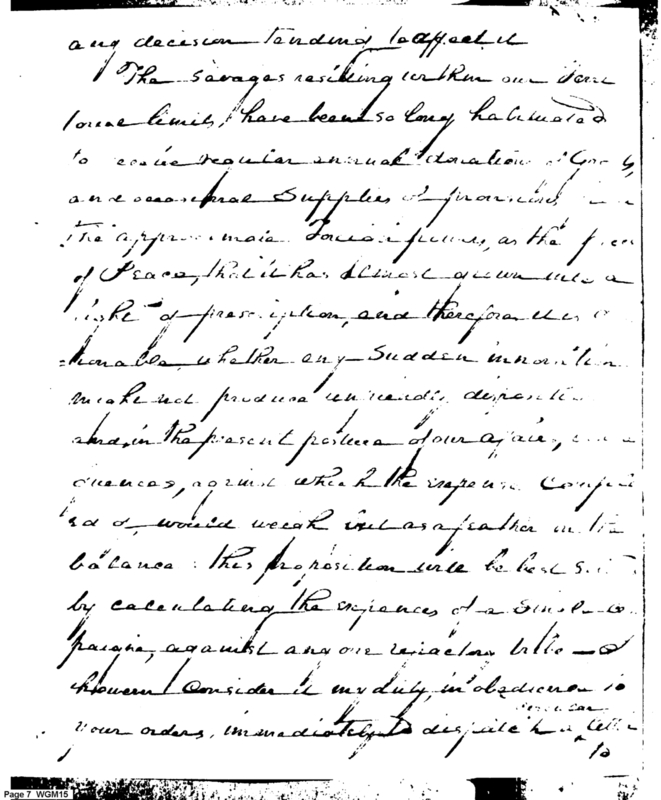 any decision tending to affect it
The Savages residing within our Terri
torial limits, have been so long habituated
to receive regular annual donations of Goods,
and occasional Supplies of provisions
The approximate Foreign powers, as the price
of Peace, that it has almost grown into a
right of prescription, and therefore it is
tionable, whether any Sudden innovation
might not produce unfriendly dispositio
and, in the present posture of our affairs, conse
quences, against which the expense Compl
ed of, would weigh but as a feather in the
balance: this proposition will be best
by calculating the expences of a Single
paign, against any one refractory tribe — I
however Consider it my duty, in obedience to
your orders, immediately to dispatch a circular letter
to
Page 7 WGM15